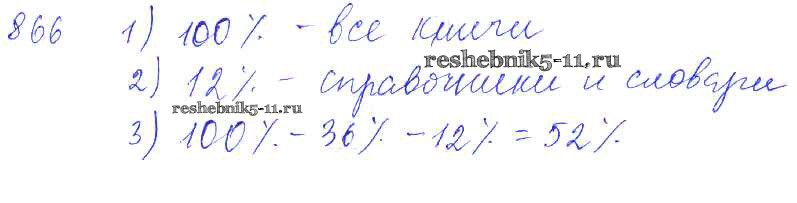 866 1) 100% - все книги
reshebnik5-11.ru
2) 12% - справочники и словари
reshebnik5-11.ru
3) 100% - 36% - 12% = 52%